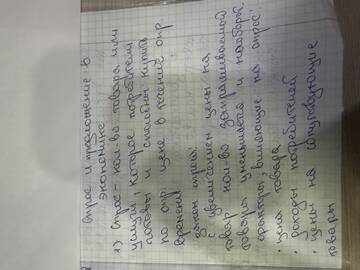 Спрос и предложение в
экономике.
1) Спрос - кол-во товара или
услуги, которое потребители
готовы и способны купить
по опр цене в течение опр
времени
закон спроса:
с увеличением цены на
товар кол-во запрашиваемого
товара уменьшается и наоборот
факторы, влияющие на спрос:
• цена товара
• доходы потребителей
• цены на сопутствующие
товары